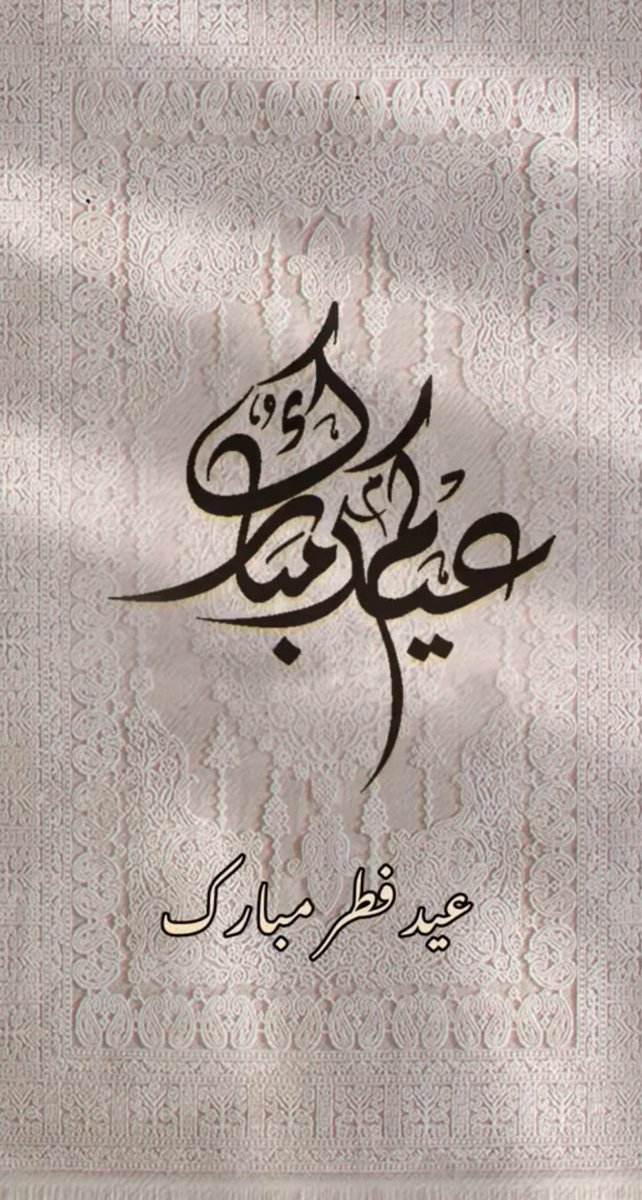 عیدکم مبارک
عید فطر مبارک